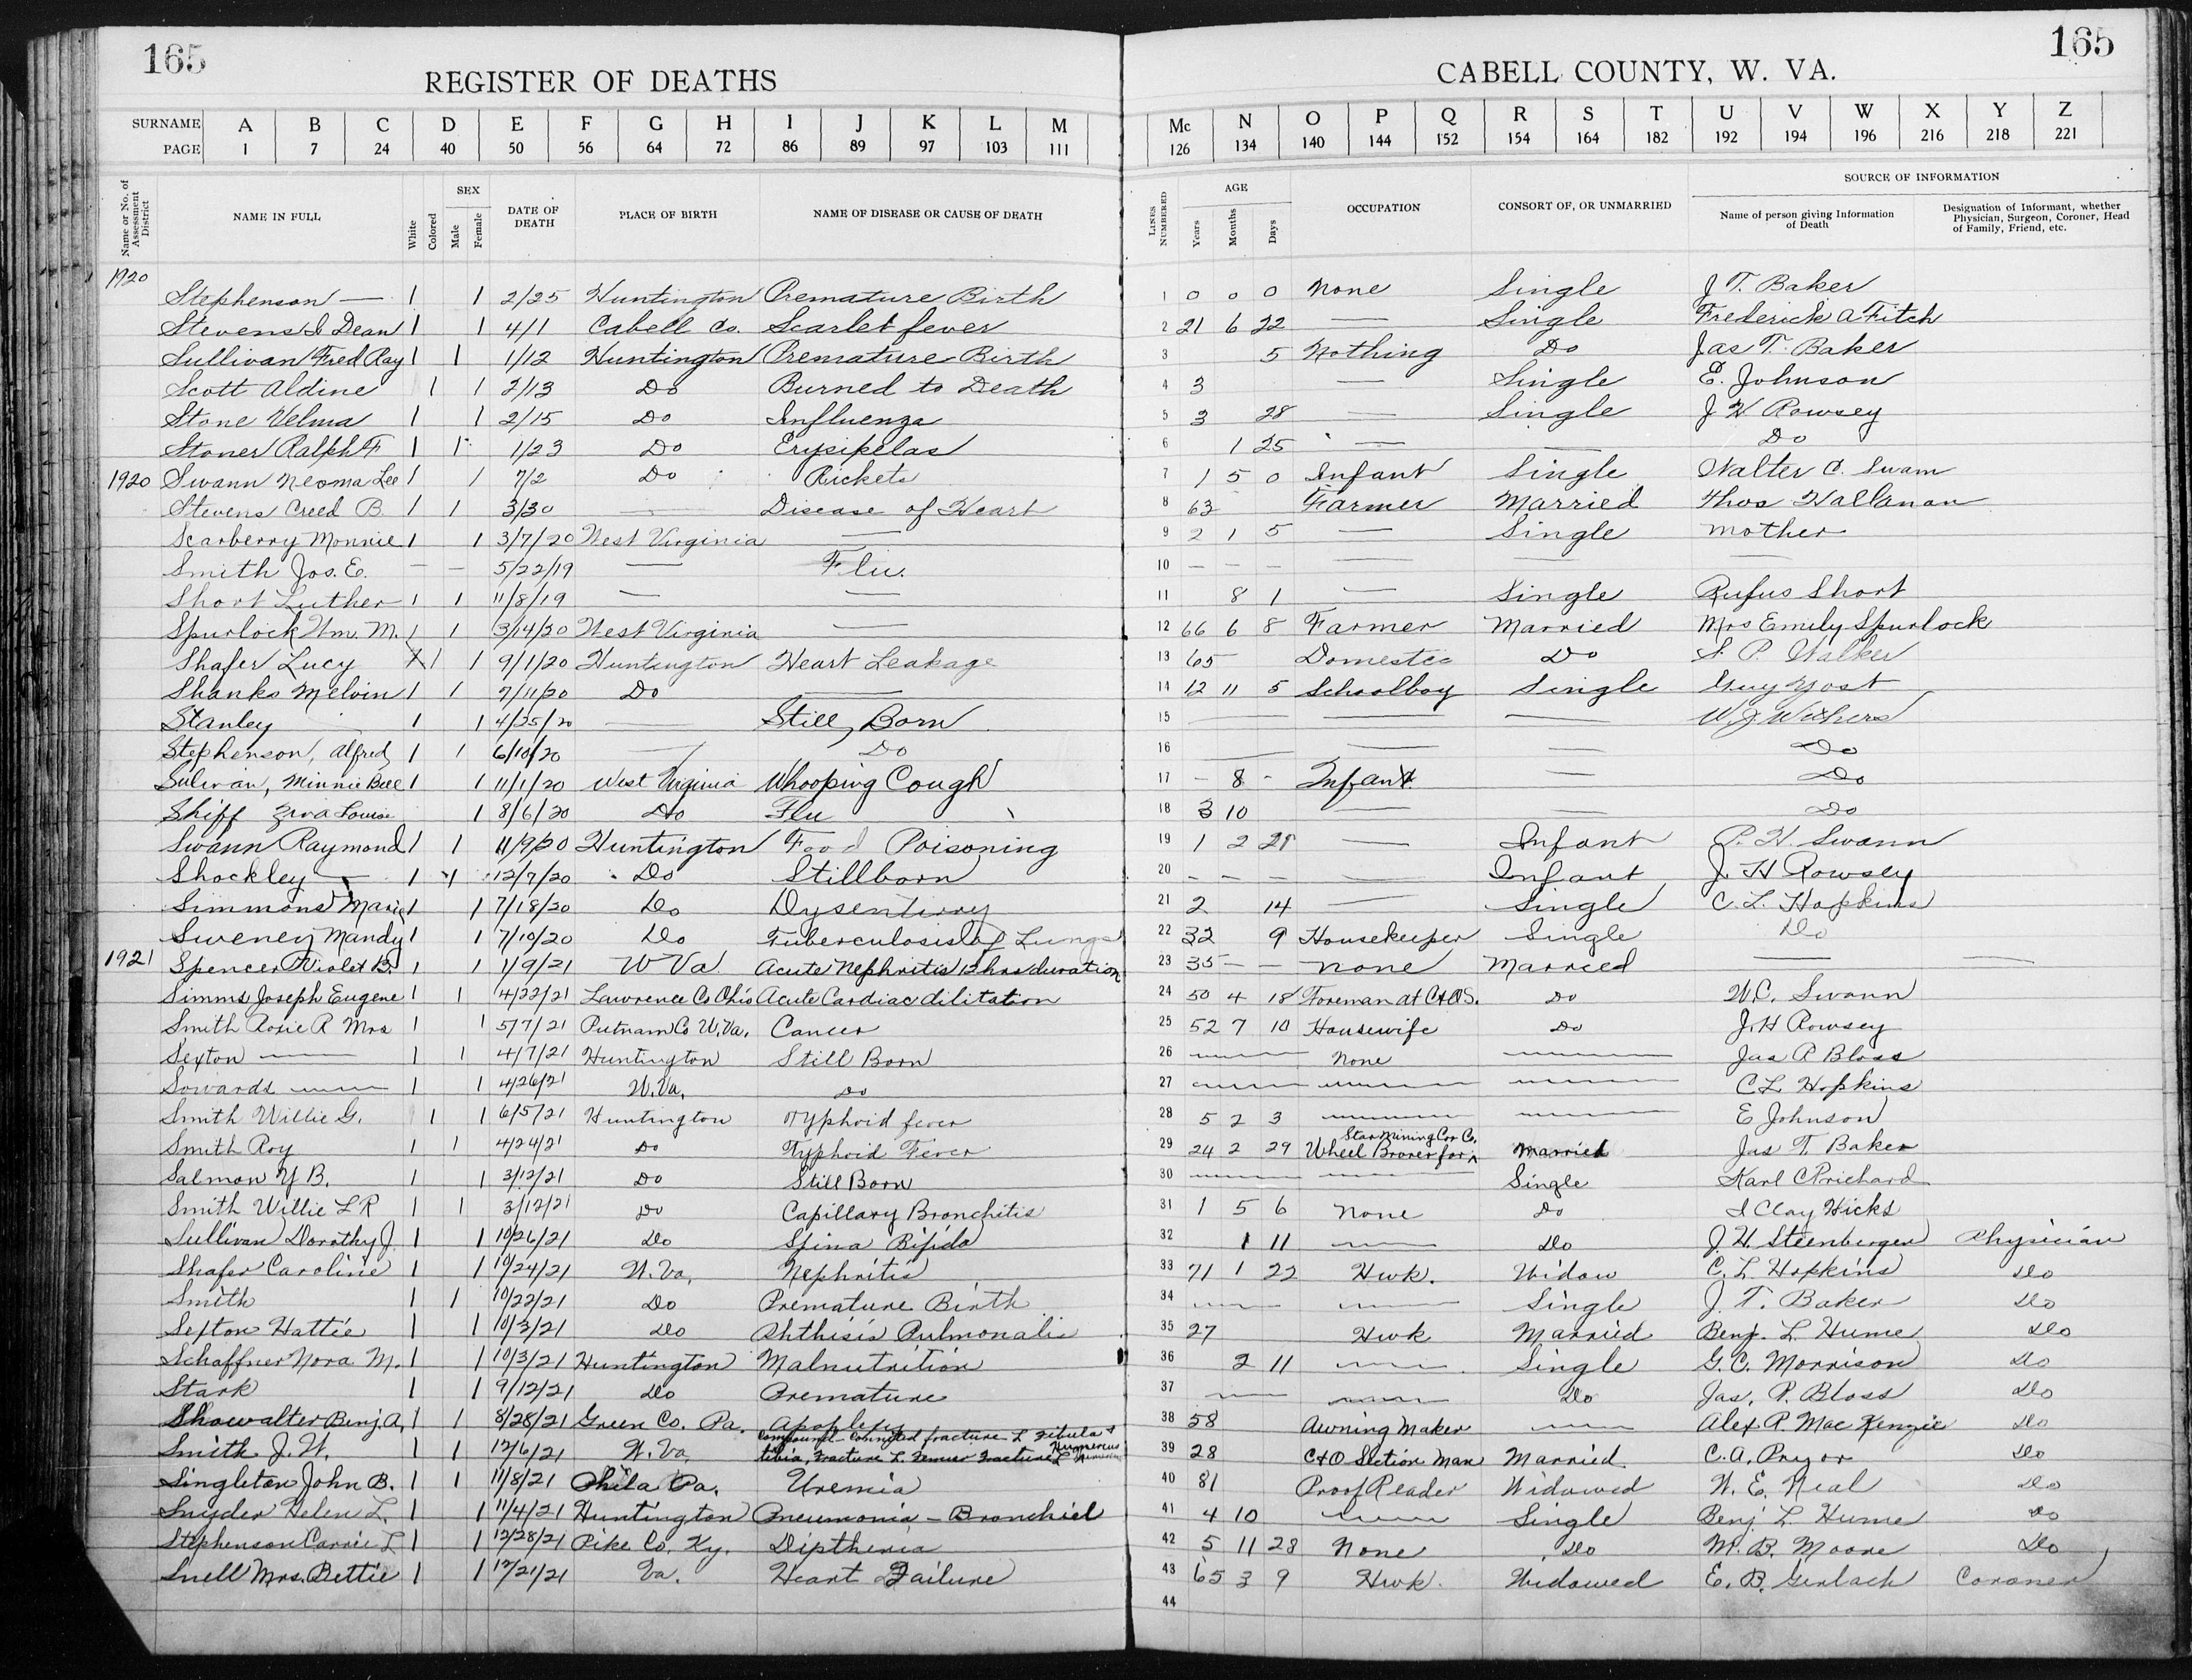 165
REGISTER OF DEATHS
SURNAME A B C D E F G H I J K L M
PAGE 1 7 24 40 50 56 64 72 86 89 97 103 111
Name or No. of Assessment District
NAME IN FULL
White
Colored
SEX
Male
Female
DATE OF DEATH
PLACE OF BIRTH
NAME OF DISEASE OR CAUSE OF DEATH
165
CABELL COUNTY, W. VA.
Mc N O P Q R S T U V W X Y Z
126 134 140 144 152 154 164 182 192 194 196 216 218 221
LINES NUMBERED
AGE
Years
Months
Days
OCCUPATION
CONSORT OF, OR UNMARRIED
SOURCE OF INFORMATION
Name of person giving Information of Death
Designation of Informant, whether Physician, Surgeon, Coroner, Head of Family, Friend, etc.
1920
Stephenson — 1 1 2/25 Huntington Premature Birth 1 0 0 0 None Single J T. Baker
Stevens I Dean 1 1 4/1 Cabell Co. Scarlet fever 2 21 6 22 — Single Frederick A Fitch
Sullivan Fred Ray 1 1 1/12 Huntington Premature Birth 3 5 Nothing Do Jas T. Baker
Scott Aldine 1 1 2/13 Do Burned to Death 4 3 — Single E. Johnson
Stone Velma 1 1 2/15 Do Influenza 5 3 28 — Single J H Rowsey
Stoner Ralph F 1 1 1/23 Do Erysipelas 6 1 25 — — Do
1920 Swann Neoma Lee 1 1 7/2 Do Rickets 7 1 5 0 Infant Single Walter C. Swam
Stevens Creed B 1 1 3/30 — Disease of Heart 8 63 Farmer Married Thos Hallanan
Scarberry Monnie 1 1 3/7/20 West Virginia — 9 2 1 5 — Single mother
Smith Jos. E. — — 5/22/19 — Flu. 10 — — — — — —
Short Luther 1 1 11/8/19 — — 11 8 1 — Single Rufus Short
Spurlock Wm. M. 1 1 3/14/20 West Virginia — 12 66 6 8 Farmer Married Mrs Emily Spurlock
Shafer Lucy X 1 1 9/1/20 Huntington Heart Leakage 13 65 Domestic Do S. P. Walker
Shanks Melvin 1 1 7/11/20 Do — 14 12 11 5 Schoolboy Single Guy Yost
Stanley 1 1 4/25/20 — Still Born 15 — — — W. J. Withers
Stephenson, Alfred 1 1 6/10/20 — Do 16 — — — Do
Sulivan, Minnie Bell 1 1 11/1/20 West Virginia Whooping Cough 17 - 8 - Infant — Do
Shiff Ziva Louise 1 8/6/20 Do Flu 18 3 10 — — Do
Swann Raymond 1 1 11/9/20 Huntington Food Poisoning 19 1 2 28 — Infant P. H. Swann
Shockley — 1 1 12/7/20 Do Stillborn 20 - - - — Infant J. H Rowsey
Simmons Marie 1 1 7/18/20 Do Dysentery 21 2 14 — Single C. L. Hopkins
Sweney Mandy 1 1 7/10/20 Do Tuberculosis of Lungs 22 32 9 Housekeeper Single Do
1921 Spencer Violet B. 1 1 1/9/21 W Va. Acute Nephritis 12 hrs duration 23 35 — — none Married — —
Simms Joseph Eugene 1 1 4/22/21 Lawrence Co Ohio Acute Cardiac dilitation 24 50 4 18 Foreman at C&OS. Do W.C. Swann
Smith Rosie R Mrs 1 1 5/7/21 Putnam Co W.Va. Cancer 25 52 7 10 Housewife Do J.H Rowsey
Sexton — 1 1 4/7/21 Huntington Still Born 26 — none — Jas R Bloss
Sowards — 1 1 4/26/21 W.Va. Do 27 — — — C L Hopkins
Smith Willie G. 1 1 6/5/21 Huntington Typhoid fever 28 5 2 3 — — E Johnson
Smith Roy 1 1 4/24/21 Do Typhoid Fever 29 24 2 29 Wheel for Star Mining Co. Married Jas T. Baker
Salmon Y B. 1 1 3/12/21 Do Still Born 30 — — Single Karl C Prichard
Smith Willie L R 1 1 3/12/21 Do Capillary Bronchitis 31 1 5 6 None Do I Clay Hicks
Sullivan Dorathy J. 1 1 10/26/21 Do Spina Bifida 32 1 11 — Do J. H. Steenbergen Physician
Shafer Caroline 1 1 10/24/21 W.Va. Nephritis 33 71 1 22 Hwk. Widow C. L. Hopkins Do
Smith 1 1 10/22/21 Do Premature Birth 34 — — Single J. T. Baker Do
Sefton Hattie 1 1 10/3/21 Do Phthisis Pulmonalis 35 27 Hwk Married Benj. L. Hume Do
Schaffner Nora M. 1 1 10/3/21 Huntington Malnutrition 36 2 11 — Single G. C. Morrison Do
Stark 1 1 9/12/21 Do Premature 37 — — Do Jas. R. Bloss Do
Showalter Benj. A, 1 1 8/28/21 Green Co. Pa. Apoplexy 38 58 Awning Maker — Alex R. Mac Kenzie Do
Smith J. W. 1 1 12/6/21 W. Va. Compound fracture L Fibula & tibia, Fracture L. Femur Fracture L Humerus 39 28 C&O Section Man Married. C. A. Pryor Do
Singleton John B. 1 1 11/8/21 Phila Pa. Uremia 40 81 Proof Reader Widowed W. E. Neal Do
Snyder Helen L. 1 1 11/4/21 Huntington Pneumonia – Bronchiel 41 4 10 — Single Benj L Hume Do
Stephenson Carrie L 1 1 12/28/21 Pike Co. Ky. Diptheria 42 5 11 28 None Do M. B. Moore Do
Snell Mrs. Bettie 1 1 12/21/21 Va. Heart Failure 43 65 3 9 Hwk. Widowed E. B. Gerlach Coroner
44